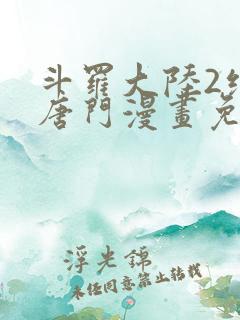 斗羅大陸2
唐門漫畫免
浮光錦
未經同意禁止轉載